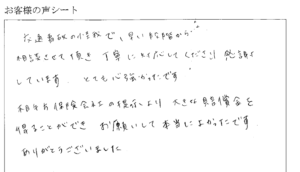 お客様の声シート
交通事故の小さな件で、早い段階から
相談させて頂き 丁寧に対応してくださり 感謝
しています とても心強かったです
相手方保険会社の提示より 大きな賠償金を
得ることができ お願いして本当によかったです
ありがとうございました